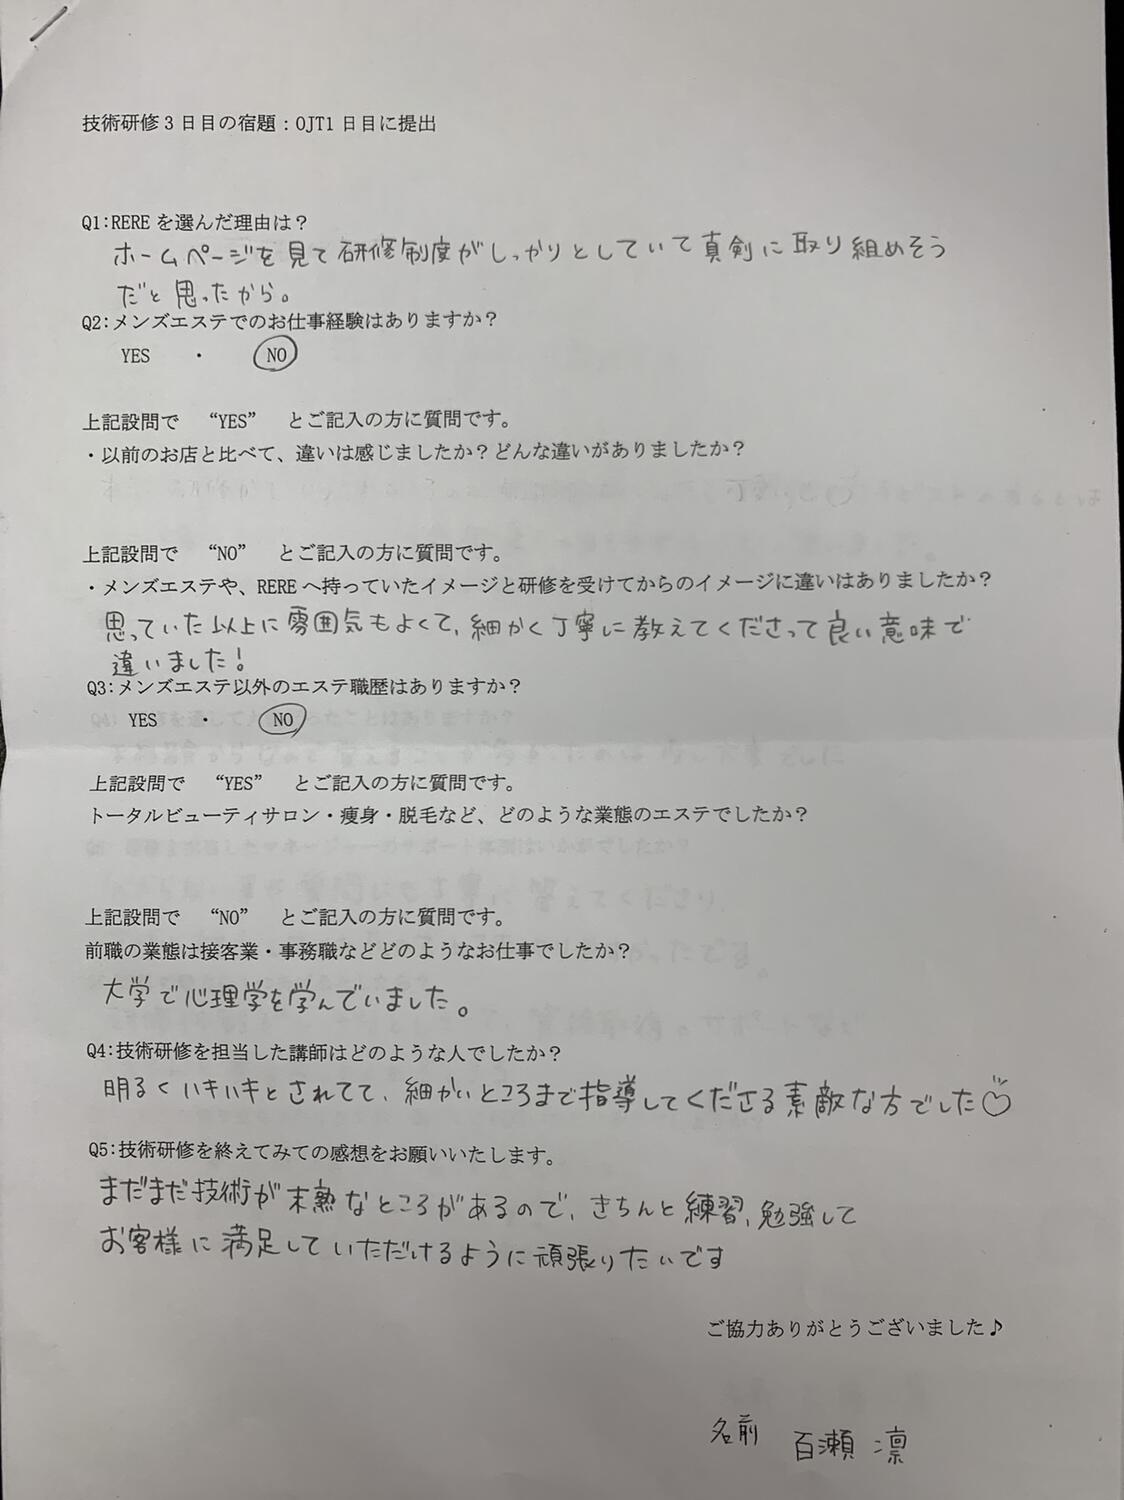 技術研修3日目の宿題：OJT1日目に提出
Q1:REREを選んだ理由は？
ホームページを見て研修制度がしっかりとしていて真剣に取り組めそう
だと思ったから。
Q2:メンズエステでのお仕事経験はありますか？
YES ・ NO
上記設問で “YES” とご記入の方に質問です。
・以前のお店と比べて、違いは感じましたか？どんな違いがありましたか？
上記設問で “NO” とご記入の方に質問です。
・メンズエステや、REREへ持っていたイメージと研修を受けてからのイメージに違いはありましたか？
思っていた以上に雰囲気もよくて、細かく丁寧に教えてくださって良い意味で
違いました！
Q3:メンズエステ以外のエステ職歴はありますか？
YES ・ NO
上記設問で “YES” とご記入の方に質問です。
トータルビューティサロン・痩身・脱毛など、どのような業態のエステでしたか？
上記設問で “NO” とご記入の方に質問です。
前職の業態は接客業・事務職などどのようなお仕事でしたか？
大学で心理学を学んでいました。
Q4:技術研修を担当した講師はどのような人でしたか？
明るくハキハキとされてて、細かいところまで指導してくださる素敵な方でした♡
Q5:技術研修を終えてみての感想をお願いいたします。
まだまだ技術が未熟なところがあるので、きちんと練習、勉強して
お客様に満足していただけるように頑張りたいです
ご協力ありがとうございました♪
名前 百瀬 凛